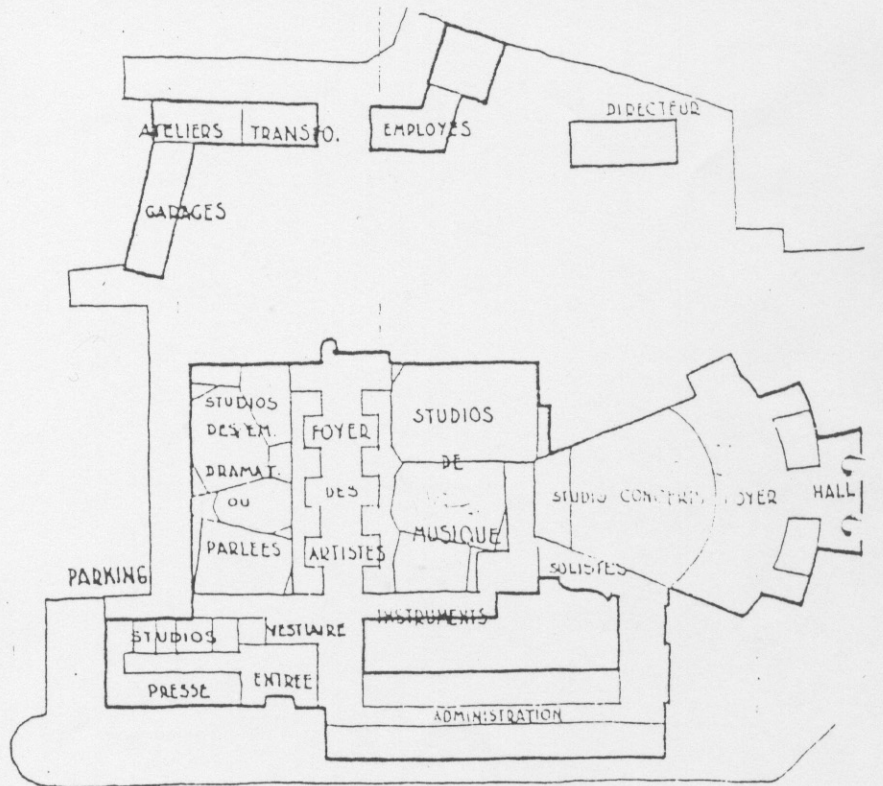 DIRECTEUR
ATELIERS TRANSFO. EMPLOYÉS
GARAGES
STUDIOS
DES EM.
DRAMAT.
OU
PARLÉES
FOYER
DES
ARTISTES
STUDIOS
DE
MUSIQUE
STUDIO CONCERTS FOYER HALL
SOLISTES
PARKING
INSTRUMENTS
STUDIOS VESTIAIRE
PRESSE ENTRÉE
ADMINISTRATION